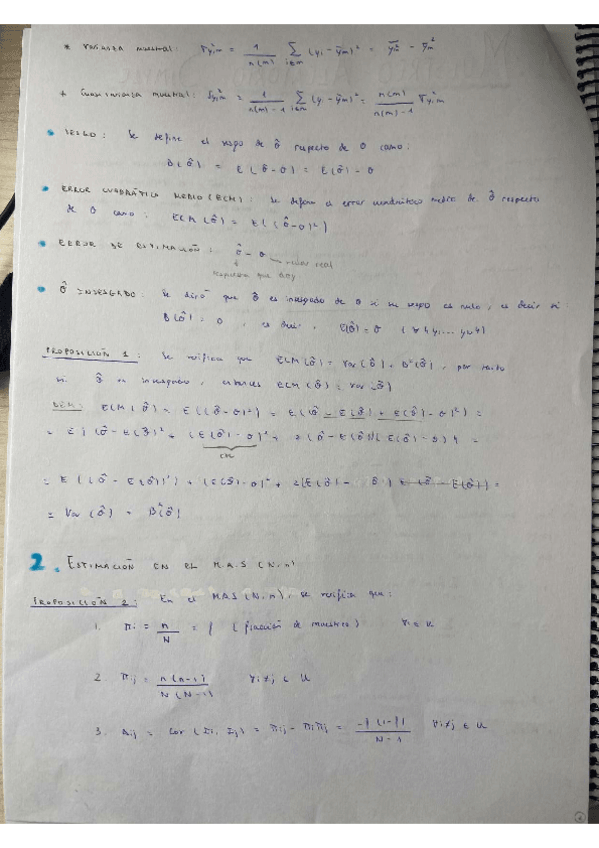 * Varianza muestral: σ²y,m = 1/n(m) Σ i∈m (yi - ȳm)² = ȳ²m - ȳm²
* Cuasivarianza muestral: S²y,m = 1/(n(m)-1) Σ i∈m (yi - ȳm)² = n(m)/(n(m)-1) σ²y,m
• SESGO: Se define el sesgo de θ̂ respecto de θ como:
B(θ̂) = E(θ̂-θ) = E(θ̂) - θ
• ERROR CUADRÁTICO MEDIO (ECM): Se define el error cuadrático medio de θ̂ respecto
de θ como: ECM(θ̂) = E((θ̂-θ)²)
• ERROR DE ESTIMACIÓN: θ̂ - θ valor real
que hay
• θ̂ INSESGADO: Se dirá que θ̂ es insesgado de θ si su sesgo es nulo, es decir si:
B(θ̂) = 0, es decir, E(θ̂) = θ
PROPOSICIÓN 1: Se verifica que ECM(θ̂) = Var(θ̂) + B²(θ̂), por tanto
si θ̂ es insesgado, entonces ECM(θ̂) = Var(θ̂)
DEM: ECM(θ̂) = E((θ̂-θ)²) = E((θ̂ - E(θ̂) + E(θ̂) - θ)²) =
= E{(θ̂ - E(θ̂))² + (E(θ̂) - θ)² + 2(θ̂ - E(θ̂))(E(θ̂) - θ)} =
cte
= E((θ̂ - E(θ̂))²) + (E(θ̂) - θ)² + 2(E(θ̂) - θ)
= Var(θ̂) + B²(θ̂)
2. ESTIMACIÓN EN EL M.A.S (N,n)
PROPOSICIÓN 2: En el MAS(N,n), se verifica que:
1. πi = n/N = f (fracción de muestreo) ∀i ∈ U
2. πij = n(n-1)/N(N-1) ∀i≠j ∈ U
3. Δij = Cov(Ii, Ij) = πij - πiπj = -f(1-f)/N-1 ∀i≠j ∈ U